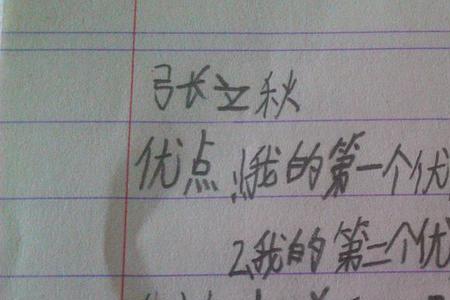 张立秋
优点:1我的第一个优
2我的第二个优